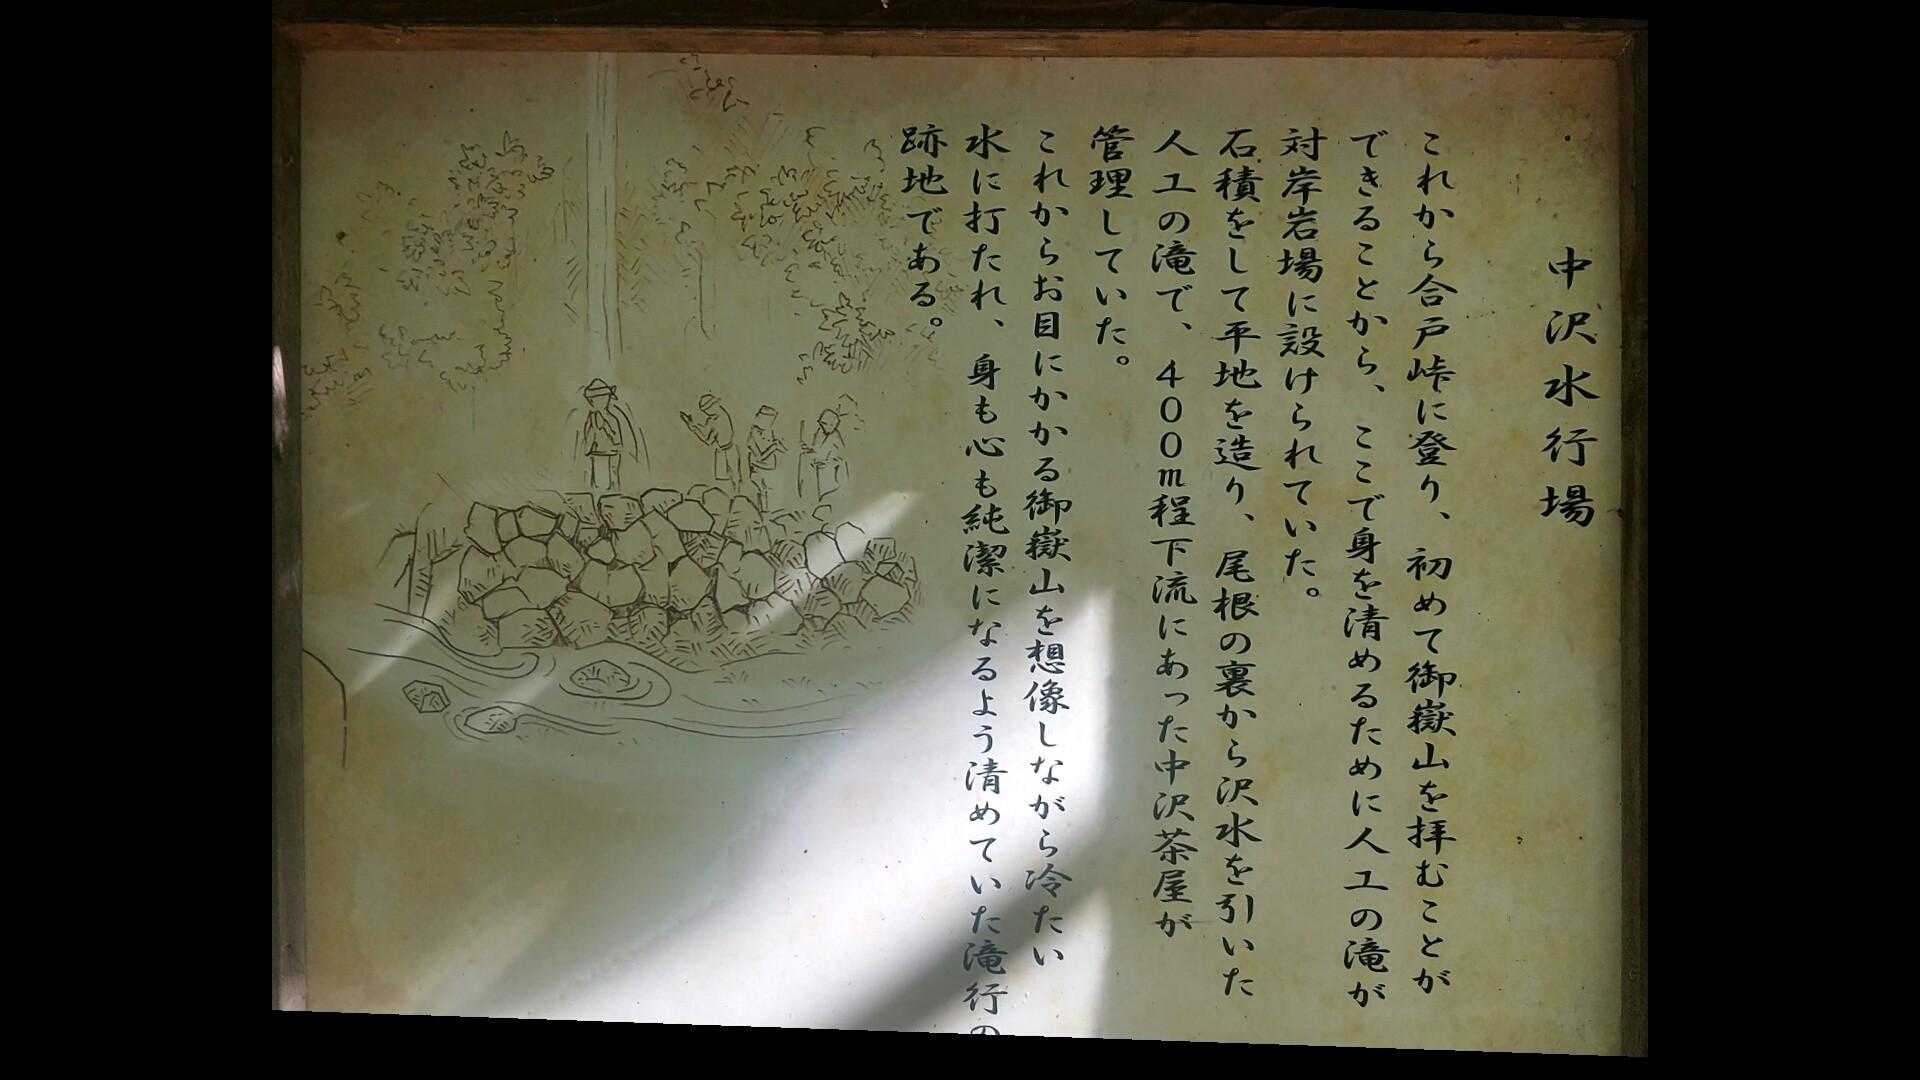 中沢水行場
これから合戸峠に登り、初めて御嶽山を拝むことが
できることから、ここで身を清めるために人工の滝が
対岸岩場に設けられていた。
石積をして平地を造り、尾根の裏から沢水を引いた
人工の滝で、400m程下流にあった中沢茶屋が
管理していた。
これからお目にかかる御嶽山を想像しながら冷たい
水に打たれ、身も心も純潔になるよう清めていた滝行の
跡地である。